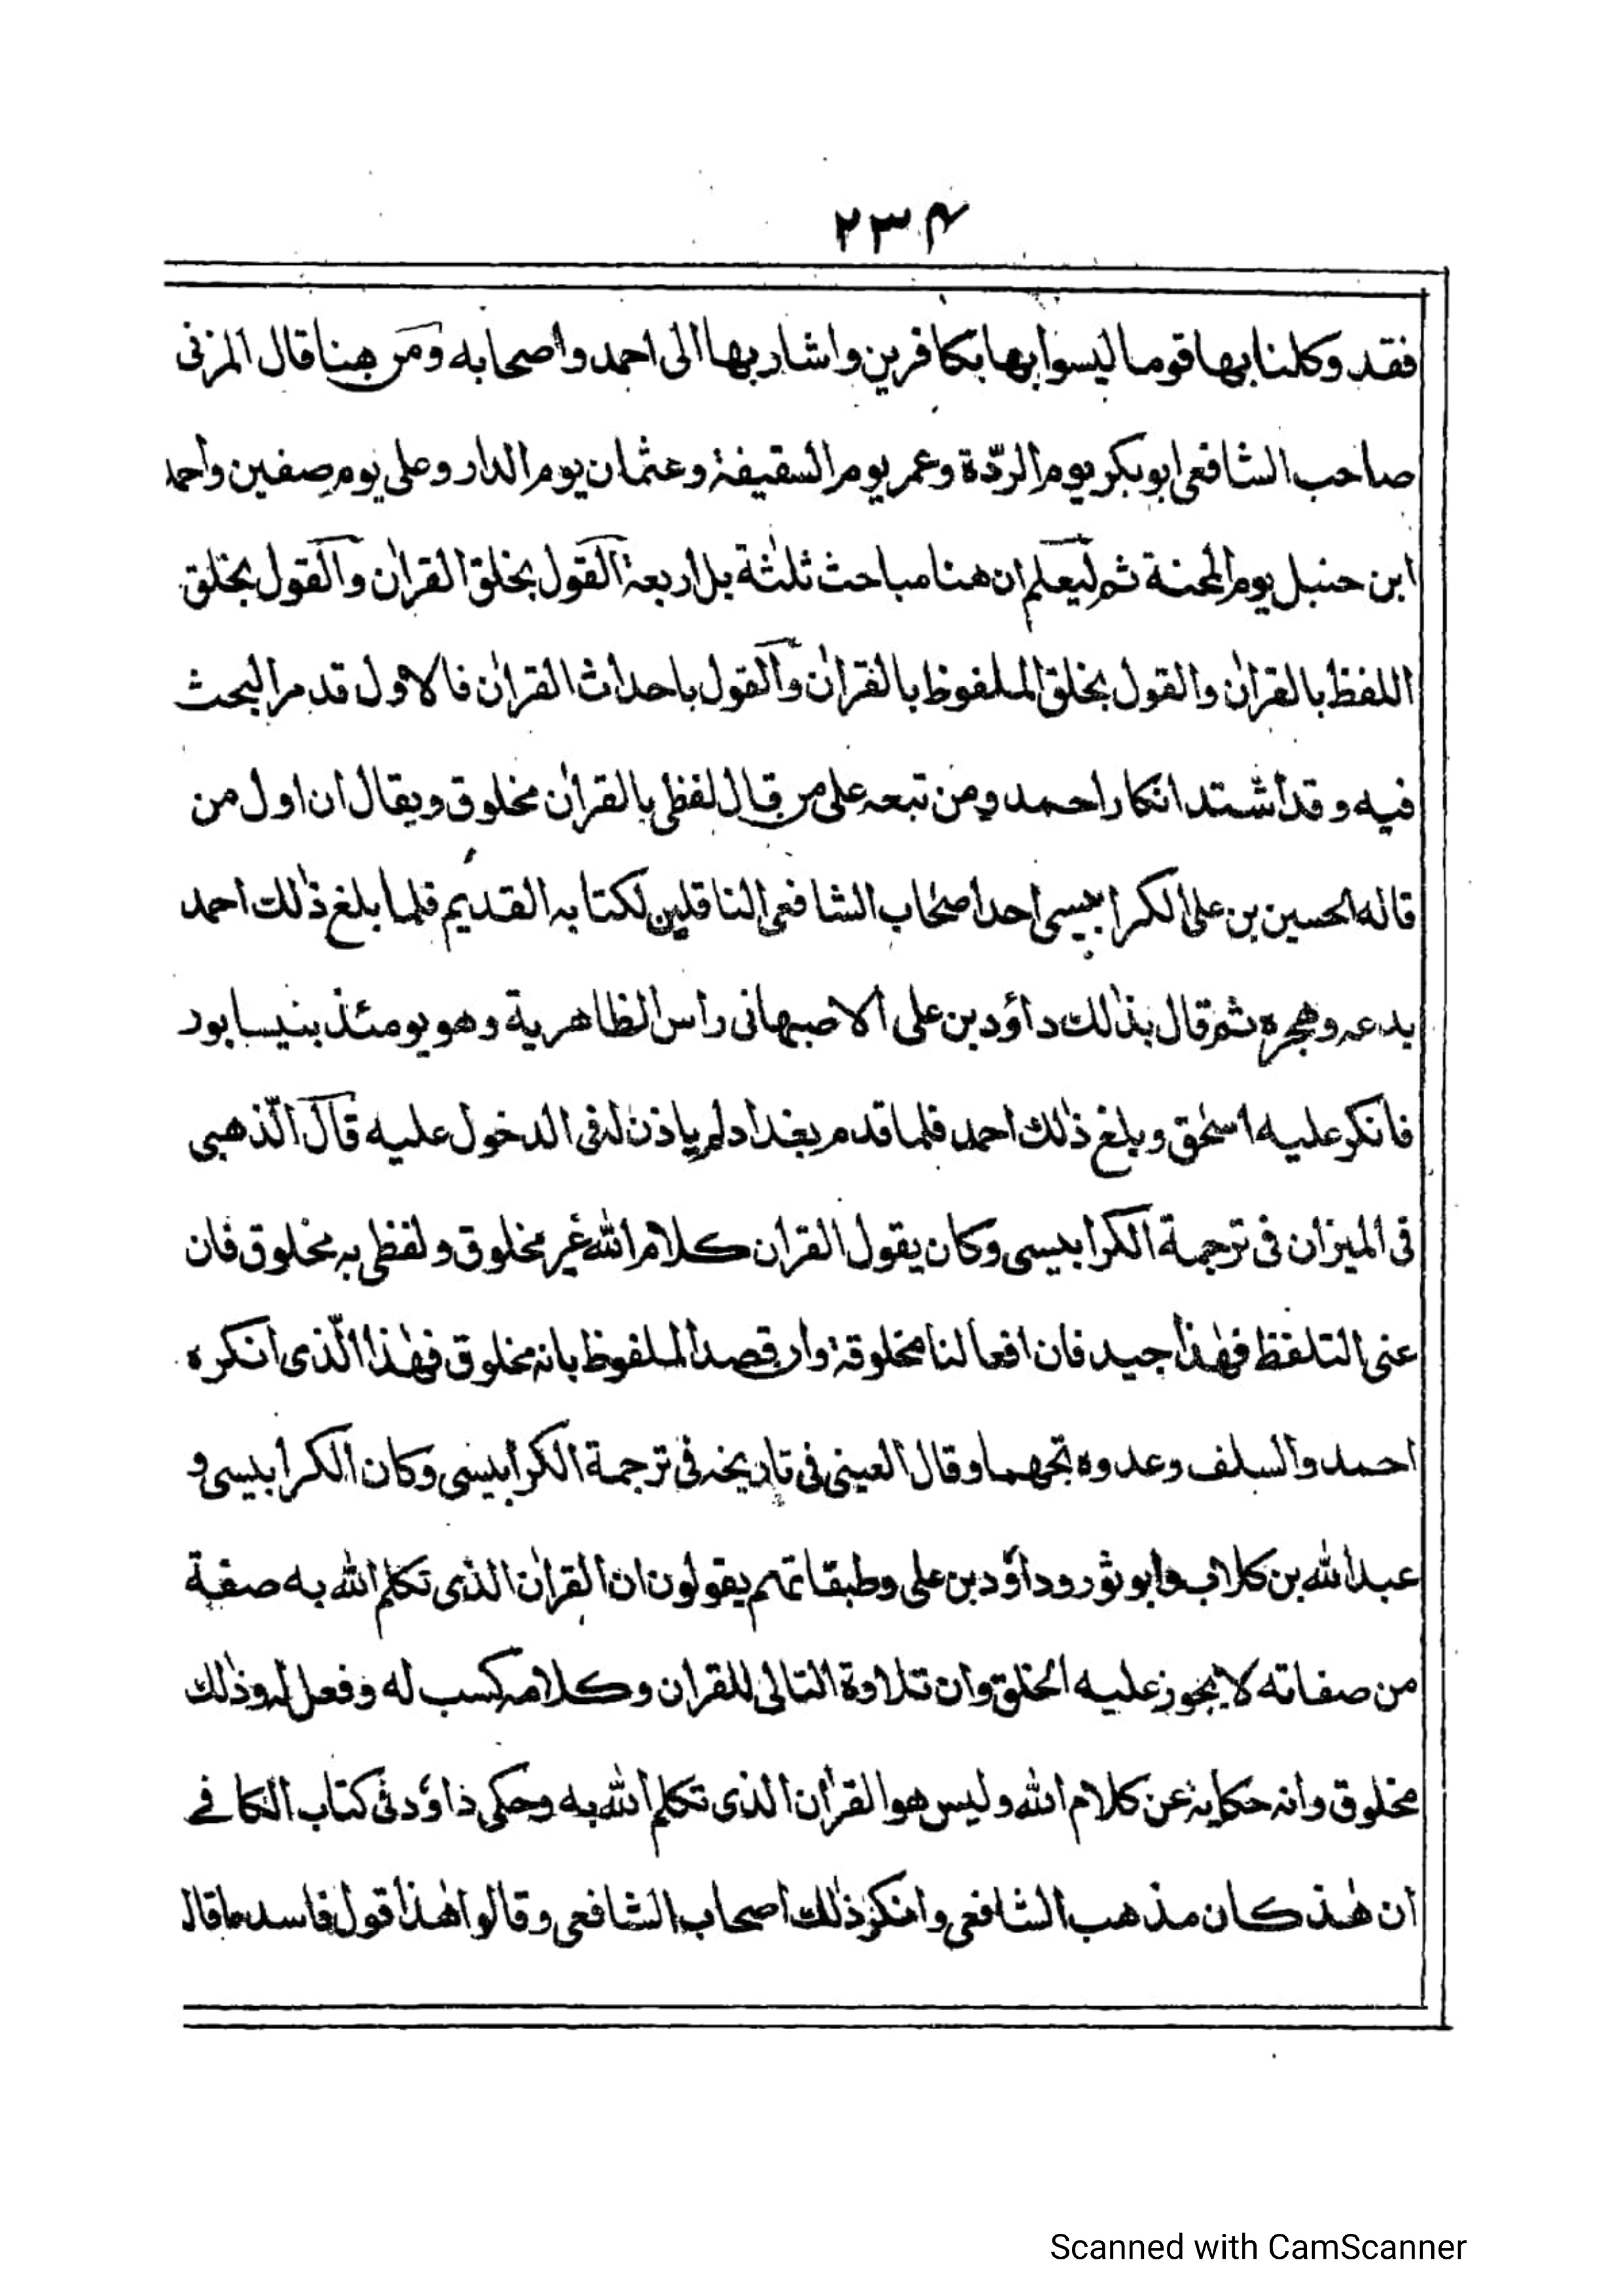 ۲۳۴
فقد وكلنا بها قوما ليسوا بها بكافرين واشار بها الى احمد واصحابه ومن هنا قال المزنى
صاحب الشافعى ابوبكر يوم الردّة وعمر يوم السقيفة وعثمان يوم الدار وعلى يوم صفين واحمد
ابن حنبل يوم المحنة ثم ليعلم ان هنا مباحث ثلثة بل اربعة القول بخلق القران والقول بخلق
اللفظ بالقران والقول بخلق الملفوظ بالقران والقول باحداث القران فالاول قد مر البحث
فيه وقد اشتد انكار احمد ومن تبعه على من قال لفظى بالقران مخلوق ويقال ان اول من
قاله الحسين بن على الكرابيسى احد اصحاب الشافعى الناقلين لكتابه القديم فلما بلغ ذلك احمد
بدعه وهجره ثم قال بذلك داؤد بن على الاصبهانى راس الظاهرية وهو يومئذ بنيسابور
فانكر عليه اسحق وبلغ ذلك احمد فلما قدم بغداد لم ياذن له فى الدخول عليه قال الذهبى
فى الميزان فى ترجمة الكرابيسى وكان يقول القران كلام الله غير مخلوق ولفظى به مخلوق فان
عنى التلفظ فهذا جيد فان افعالنا مخلوقة وان قصد الملفوظ بانه مخلوق فهذا الّذى انكره
احمد والسلف وعدوه تجهما وقال العينى فى تاريخه فى ترجمة الكرابيسى وكان الكرابيسى و
عبد الله بن كلاب وابو ثور وداؤد بن على وطبقاتهم يقولون ان القران الذى تكلم الله به صفة
من صفاته لا يجوز عليه الخلق وان تلاوة التالى للقران وكلامه كسب له وفعل له وذلك
مخلوق وانه حكاية عن كلام الله وليس هو القران الذى تكلم الله به وحكى داؤد فى كتاب الكافى
ان هذ كان مذهب الشافعى وانكر ذلك اصحاب الشافعى وقالوا هذا قول فاسد ما قال
Scanned with CamScanner